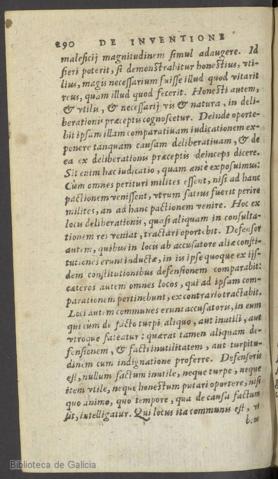 290 DE INVENTIONE
maleficij magnitudinem simul adaugere. Id
fieri poterit, si demonstrabitur honestius, vti-
lius, magis necessarium fuisse illud quod vitarit
reus, quam illud quod fecerit. Honesti autem,
& vtilis, & necessarij vis & natura, in deli-
berationis præceptis cognoscetur. Deinde oporte-
bit ipsam illam comparatiuam iudicationem ex-
ponere tanquam causam deliberatiuam, & de
ea ex deliberationis præceptis deinceps dicere.
Sit enim hæc iudicatio, quam antè exposuimus:
Cum omnes perituri milites essent, nisi ad hanc
pactionem venissent, vtrum satius fuerit perire
milites, an ad hanc pactionem venire. Hoc ex
locis deliberationis, quasi aliquam in consulta-
tionem res veniat, tractari oportebit. Defensor
autem, quibus in locis ab accusatore aliæ consti-
tutiones erunt inductæ, in iis ipse quoque ex iis-
dem constitutionibus defensionem comparabit:
cæteros autem omnes locos, qui ad ipsam com-
parationem pertinebunt, ex contrario tractabit.
Loci autem communes erunt accusatoris, in eum
qui cum de facto turpi aliquo, aut inutili, aut
vtroque fateatur: quærat tamen aliquam de-
fensionem, & facti inutilitatem, aut turpitu-
dinem cum indignatione proferre. Defensoris
est, nullum factum inutile, neque turpe, neque
item vtile, neque honestum putari oportere, nisi
quo animo, quo tempore, qua de causa factum
sit, intelligatur. Qui locus ita communis est, vt
Biblioteca de Galicia